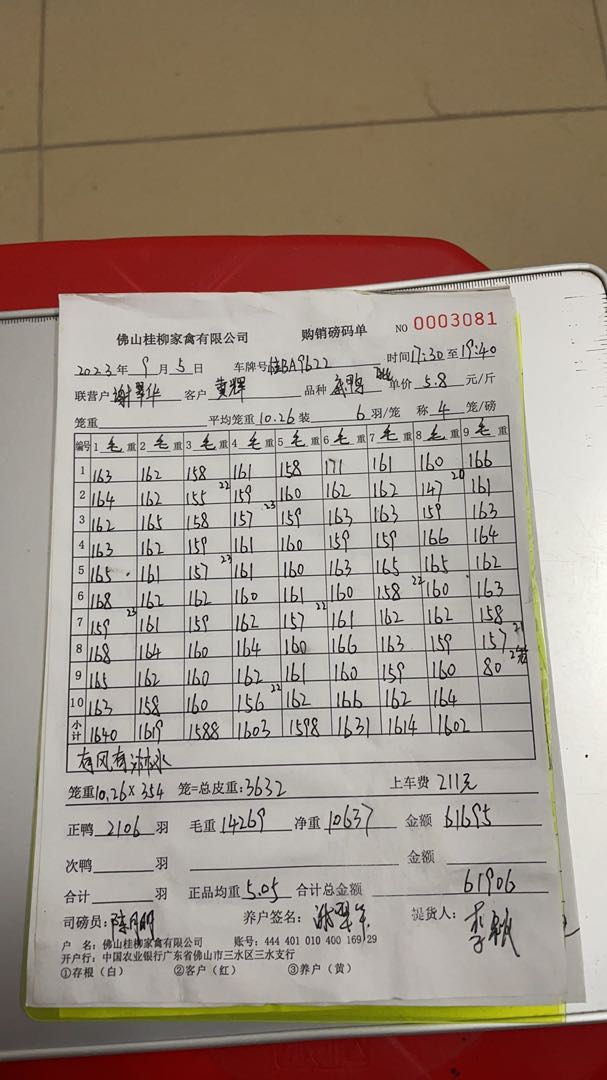 佛山桂柳家禽有限公司 购销磅码单 NO 0003081
2023年 9月 5日 车牌号 桂BA9622 时间17:30至19:40
联营户 谢翠华 客户 黄辉 品种 单价 5.8 元/斤
笼重 平均笼重 10.26 装 6 羽/笼 称 4 笼/磅
编号 1 毛 重 2 毛 重 3 毛 重 4 毛 重 5 毛 重 6 毛 重 7 毛 重 8 毛 重 9 毛 重
1 163 162 158 161 158 171 161 160 166
2 164 162 155 22 159 160 162 162 147 20 161
3 162 165 158 157 23 159 163 163 159 163
4 163 162 159 161 160 159 159 166 164
5 165 161 157 23 161 160 163 165 165 162
6 168 162 162 160 161 160 158 22 160 163
7 159 23 161 159 162 157 22 161 162 162 158
8 168 164 160 164 160 166 163 159 157 21
9 165 162 160 162 161 160 159 160 80 2笼
10 163 158 160 156 22 162 166 162 164
小计 1640 1619 1588 1603 1598 1631 1614 1602
有风有淋水
笼重10.26×354 笼=总皮重:3632 上车费 211元
正鸭 2106 羽 毛重 14269 净重 10637 金额 61695
次鸭 羽 金额
合计 羽 正品均重 5.05 合计总金额 61906
司磅员: 养户签名: 谢翠华 提货人:
户 名: 佛山桂柳家禽有限公司 账号: 444 401 010 400 169 29
开户行: 中国农业银行广东省佛山市三水区三水支行
①存根(白) ②客户(红) ③养户(黄)